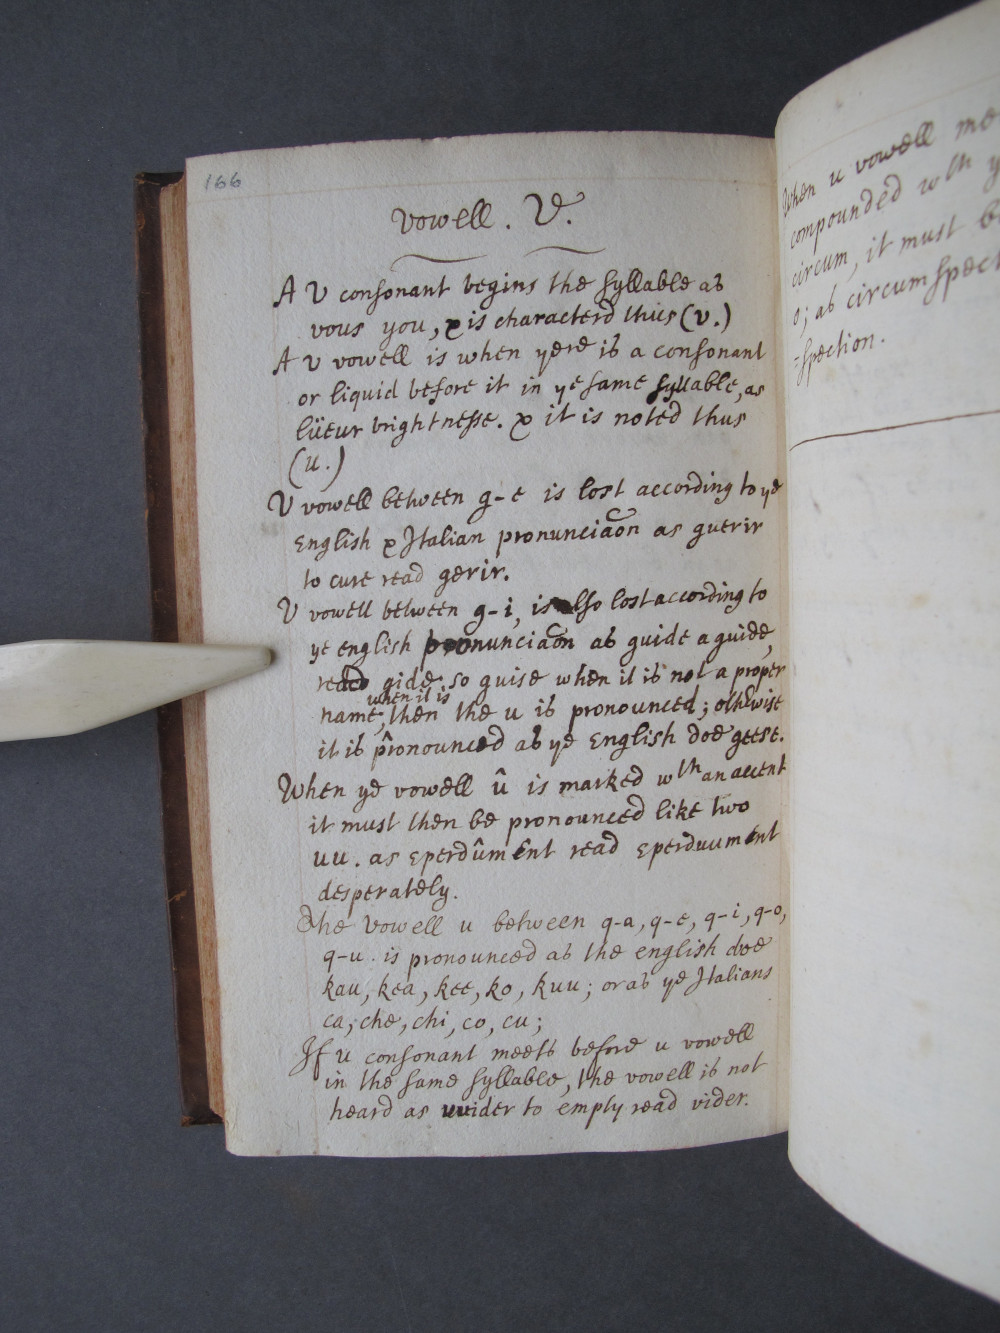 166
vowell. V.
A V consonant begins the syllable as
vous you, & is characterd thus (v.)
A V vowell is when yere is a consonant
or liquid before it in ye same syllable, as
lüeur brightnesse. & it is noted thus
(u.)
V vowell between g-e is lost according to ye
English & Italian pronunciaõn as guerir
to cure read gerir.
V vowell between g-i, is also lost according to
ye english pronunciaõn as guide a guide,
read gide. so guise when it is not a proper
when it is
name; then the u is pronounced; otherwise
it is pronounced as ye English doe geese.
When ye vowell û is marked wth an accent
it must then be pronounced like two
uu. as eperdûment read eperduument
desperately.
The vowell u between q-a, q-e, q-i, q-o,
q-u. is pronounced as the english doe
kau, kea, kee, ko, kuu; or as ye Italians
ca, che, chi, co, cu;
If u consonant meets before u vowell
in the same syllable, the vowell is not
heard as vuider to empty read vider.
When u vowell me
compounded wth y
circum, it must b
o; as circumspect
=spection.